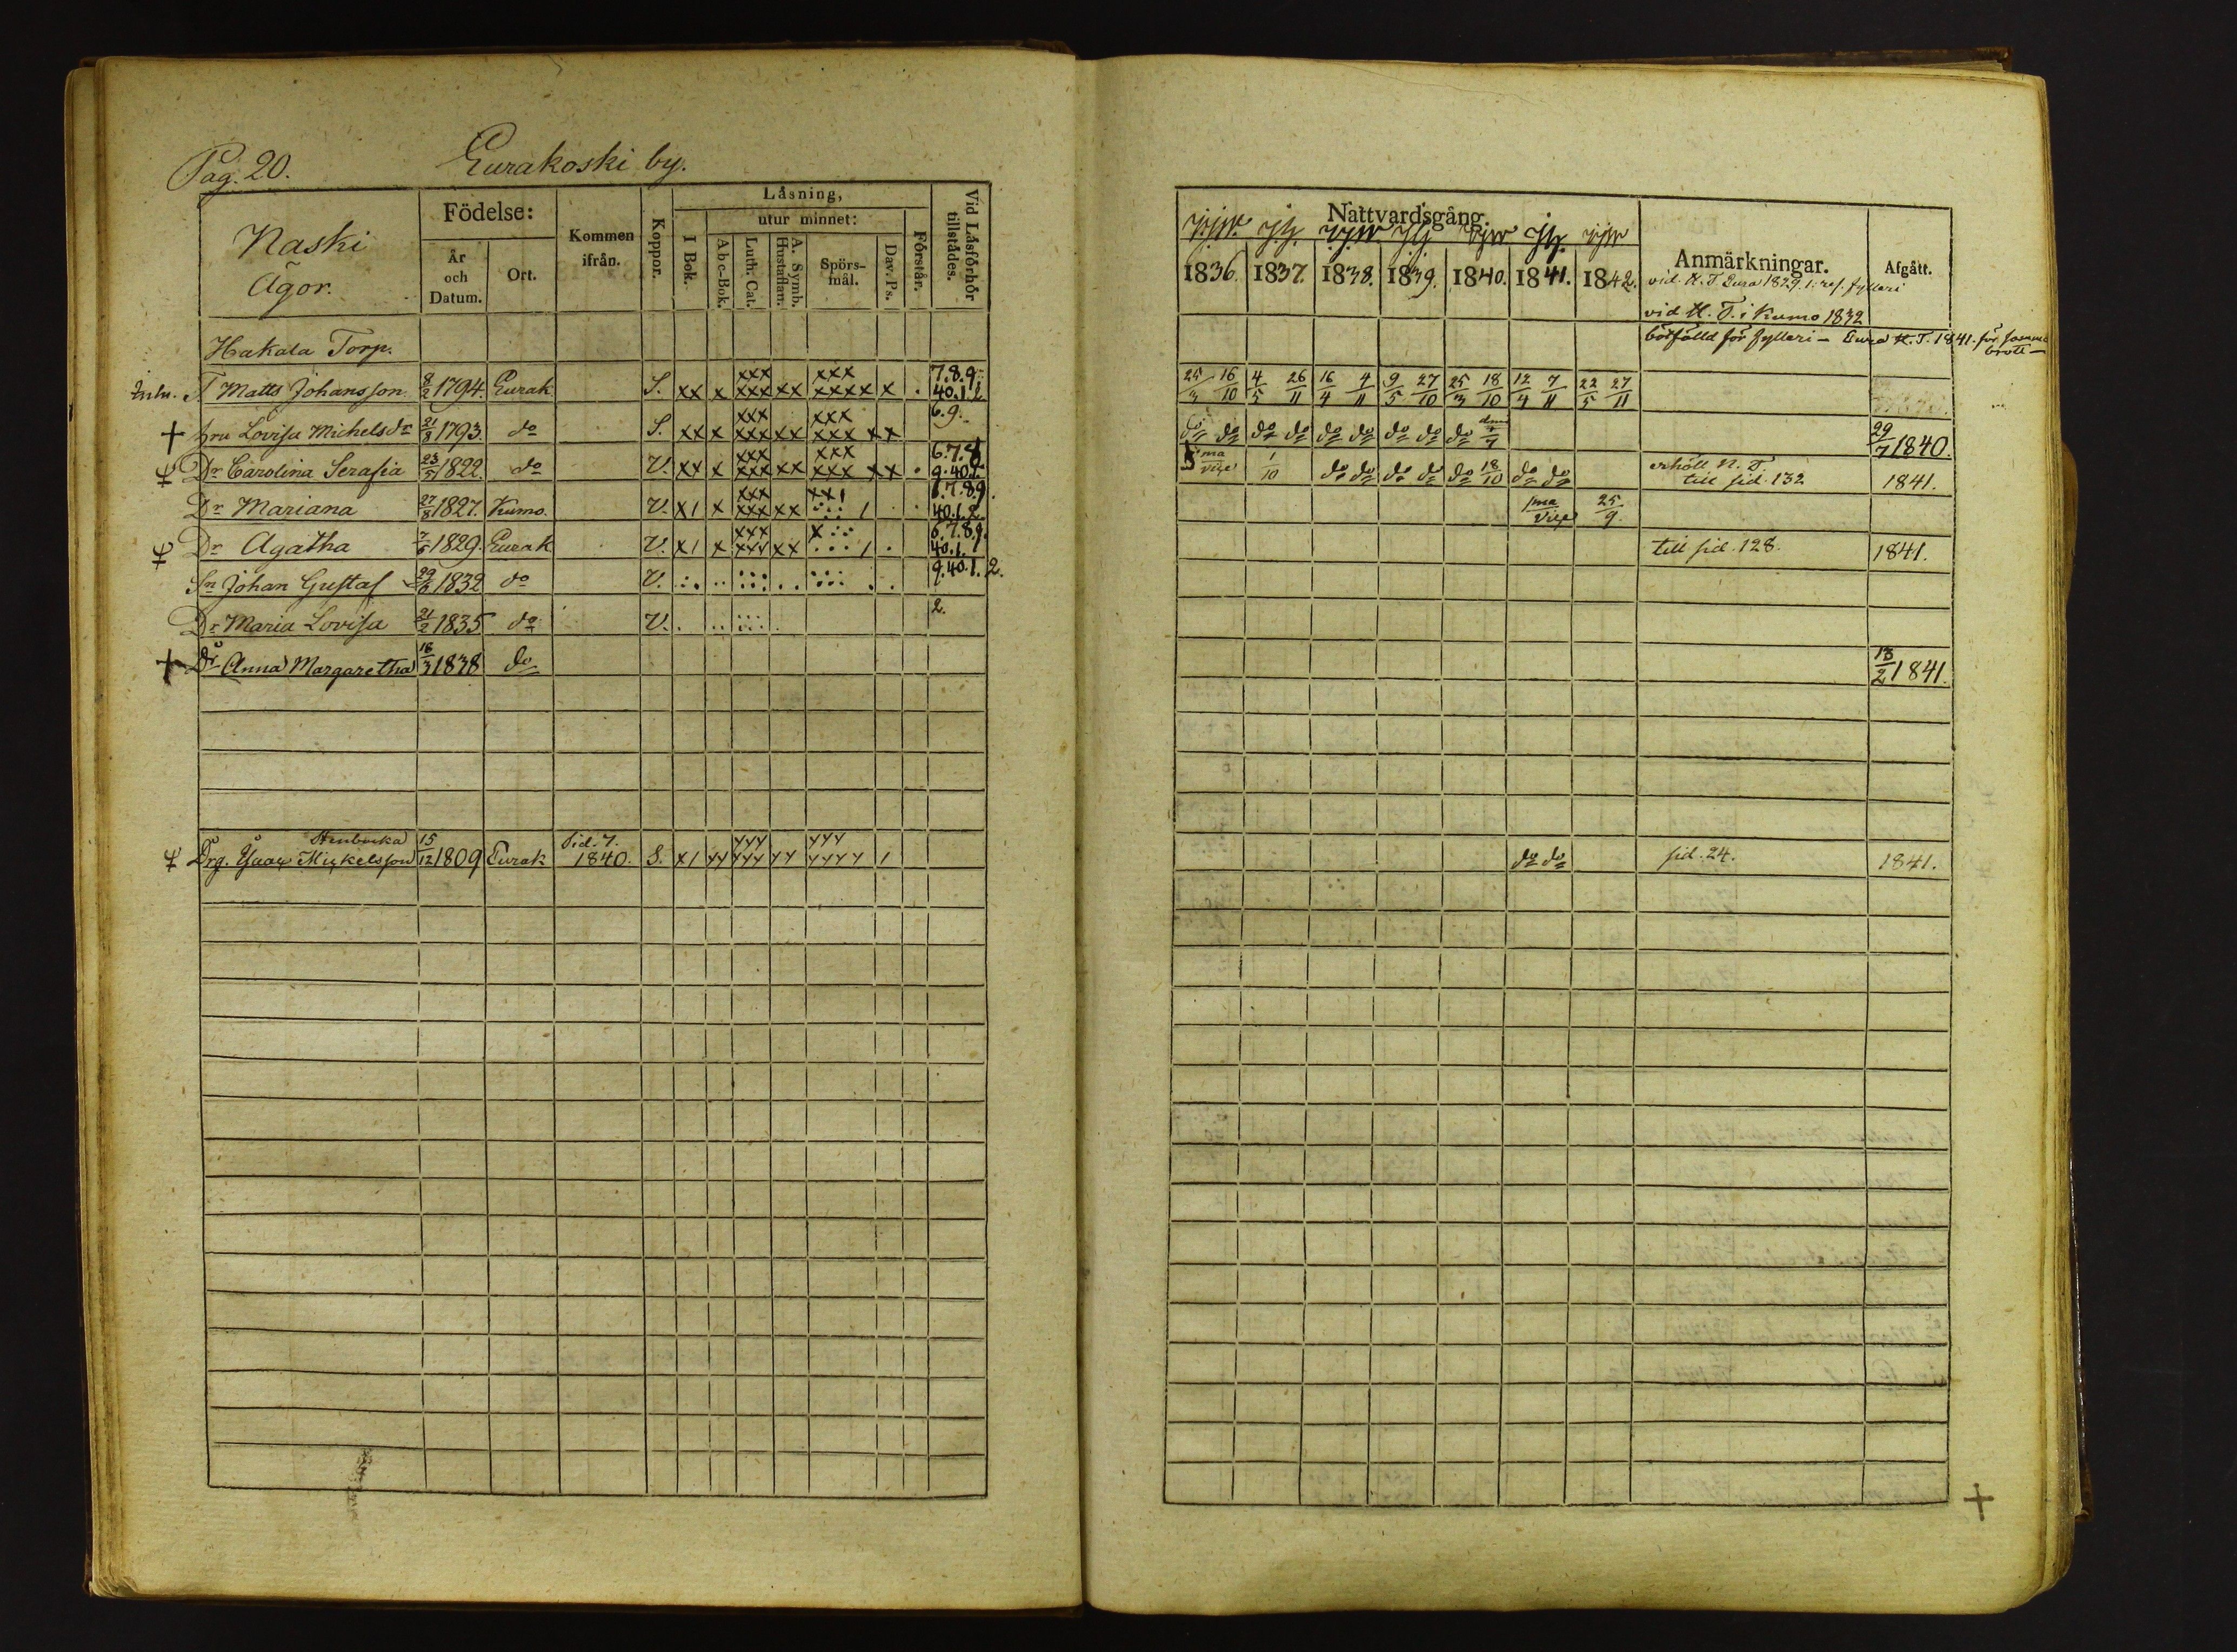 Pag. 20. Eurakoski by.
Naski
Ägor.
Födelse:
År och Datum.
Ort.
Kommen ifrån.
Koppor.
Läsning,
I Bok.
utur minnet:
A b c-Bok.
Luth. Cat.
A. Symb. Hustaflan.
Spörs-mål.
Dav. Ps.
Förstår.
Vid Läsförhör tillstädes.
Hakala Torp.
T Matts Johansson. 8/2 1794. Eurak S. xx x xxx xxx xx xxx xxxx x . 7.8.9. 40.1.2
+ hru Lovisa Michelsdr 21/8 1793. do S. xx x xxx xxx xx xxx xxx xx 6.9.
Dr Carolina Serafia 23/5 1822. do V. xx x xxx xxx xx xxx xxx xx . 6.7.8 9.40.1.
Dr Mariana 27/8 1827. Kumo. V. x1 x xxx xxx xx xx1 1 . 6.7.8.9. 40.1.2.
Dr Agatha 7/5 1829. Eurak V. x1 x xxx xxx xx x 1 . 6.7.8.9. 40.1.
Sn Johan Gustaf 29/6 1832 do V. 9.40.1.2.
Dr Maria Lovisa 21/2 1835 do V. 2.
+ Dr Anna Margaretha 18/3 1838 do
Stenbacka
Drg. Isaac Mickelsson 15/12 1809 Eurak Sid. 7. 1840. S. x1
Nattvardsgång.
1836. 1837. 1838. 1839. 1840. 1841. 1842.
Anmärkningar.
Afgått.
vid H. T. Eura 1829. 1. res. fylleri
vid H. T. i Kumo 1832
bötfälld för fylleri - Eura H. T. 1841. för samma
brott -
25/3 16/10 4/5 26/11 16/4 4/11 9/5 27/10 25/3 18/10 12/4 7/11 22/5 27/11
do do do do do do do do do 29/7 1840.
1/10 do do do do do 18/10 do do erhöll N. T.
till sid. 132 1841.
25/9.
till sid. 128. 1841.
13/2 1841.
do do sid. 24. 1841.
+